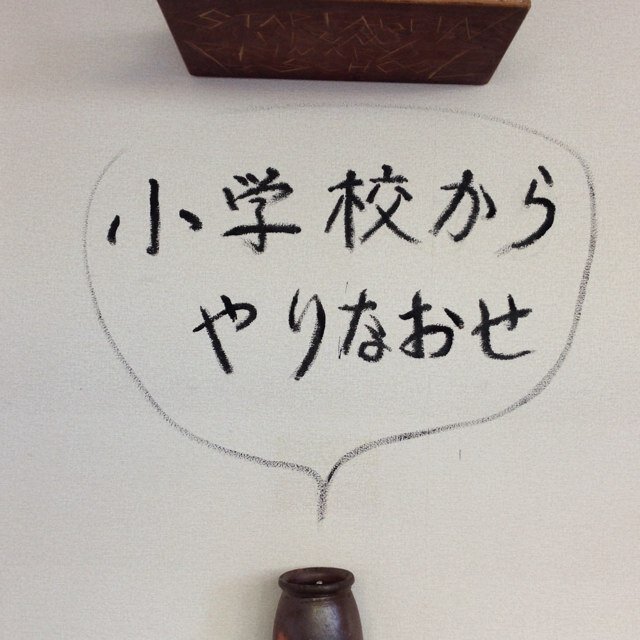 小学校から
やりなおせ